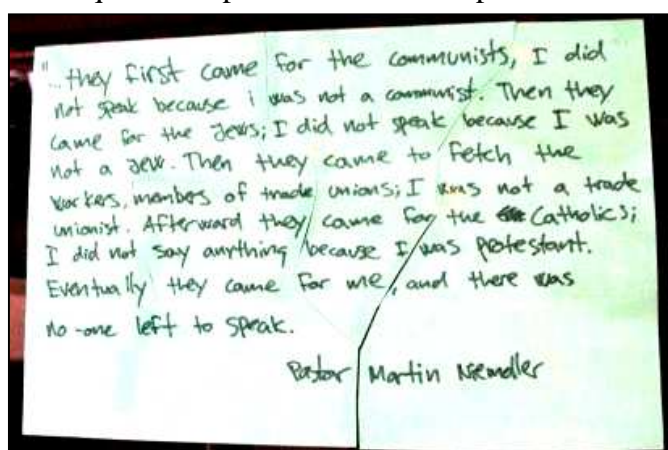 "...they first came for the communists, I did
not speak because i was not a communist. Then they
came for the Jews; I did not speak because I was
not a Jew. Then they came to fetch the
workers, members of trade unions; I was not a trade
unionist. Afterward they came for the Catholics;
I did not say anything because I was protestant.
Eventually they came for me, and there was
no-one left to speak.
Pastor Martin Niemdller